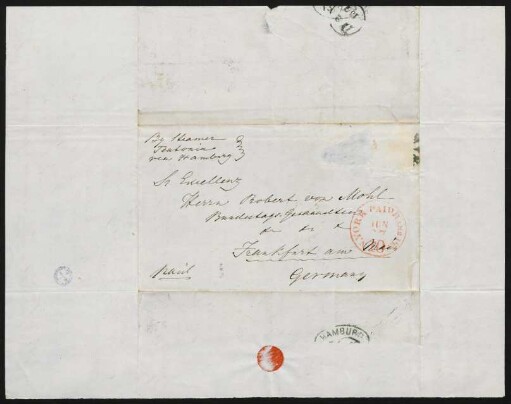 By Steamer
Teutonia
via Hamburg
Sr Excellenz
Herrn Robert von Mohl
Bundestags Gesandten
Frankfurt am Main
Germany
paid
YORK PAID
JUN
HAMBURG